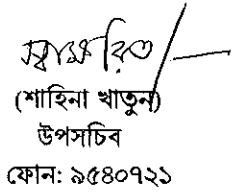 স্বাক্ষরিত/—
(শাহিনা খাতুন)
উপসচিব
ফোন: ৯৫৪০৭২১